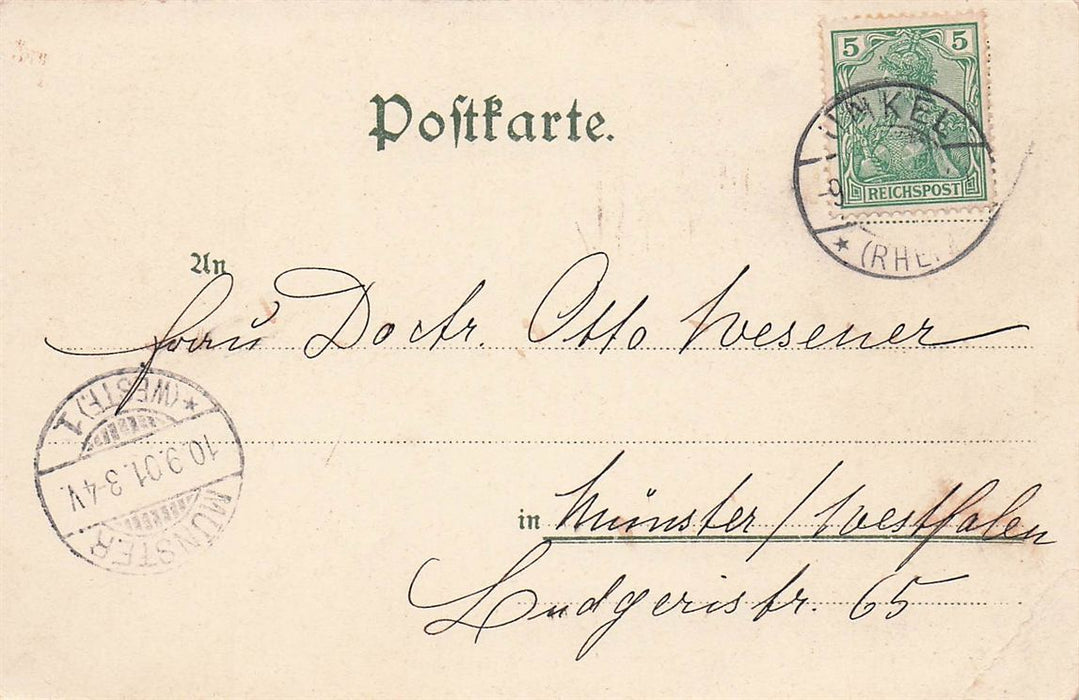 5 5
REICHSPOST
UNKEL
9
* (RHEI
Postkarte.
An
Frau Doctr. Otto Wesener
* (WESTF.) 1
10.9.01. 3-4 V.
MÜNSTER
in Münster / Westfalen
Ludgeristr. 65